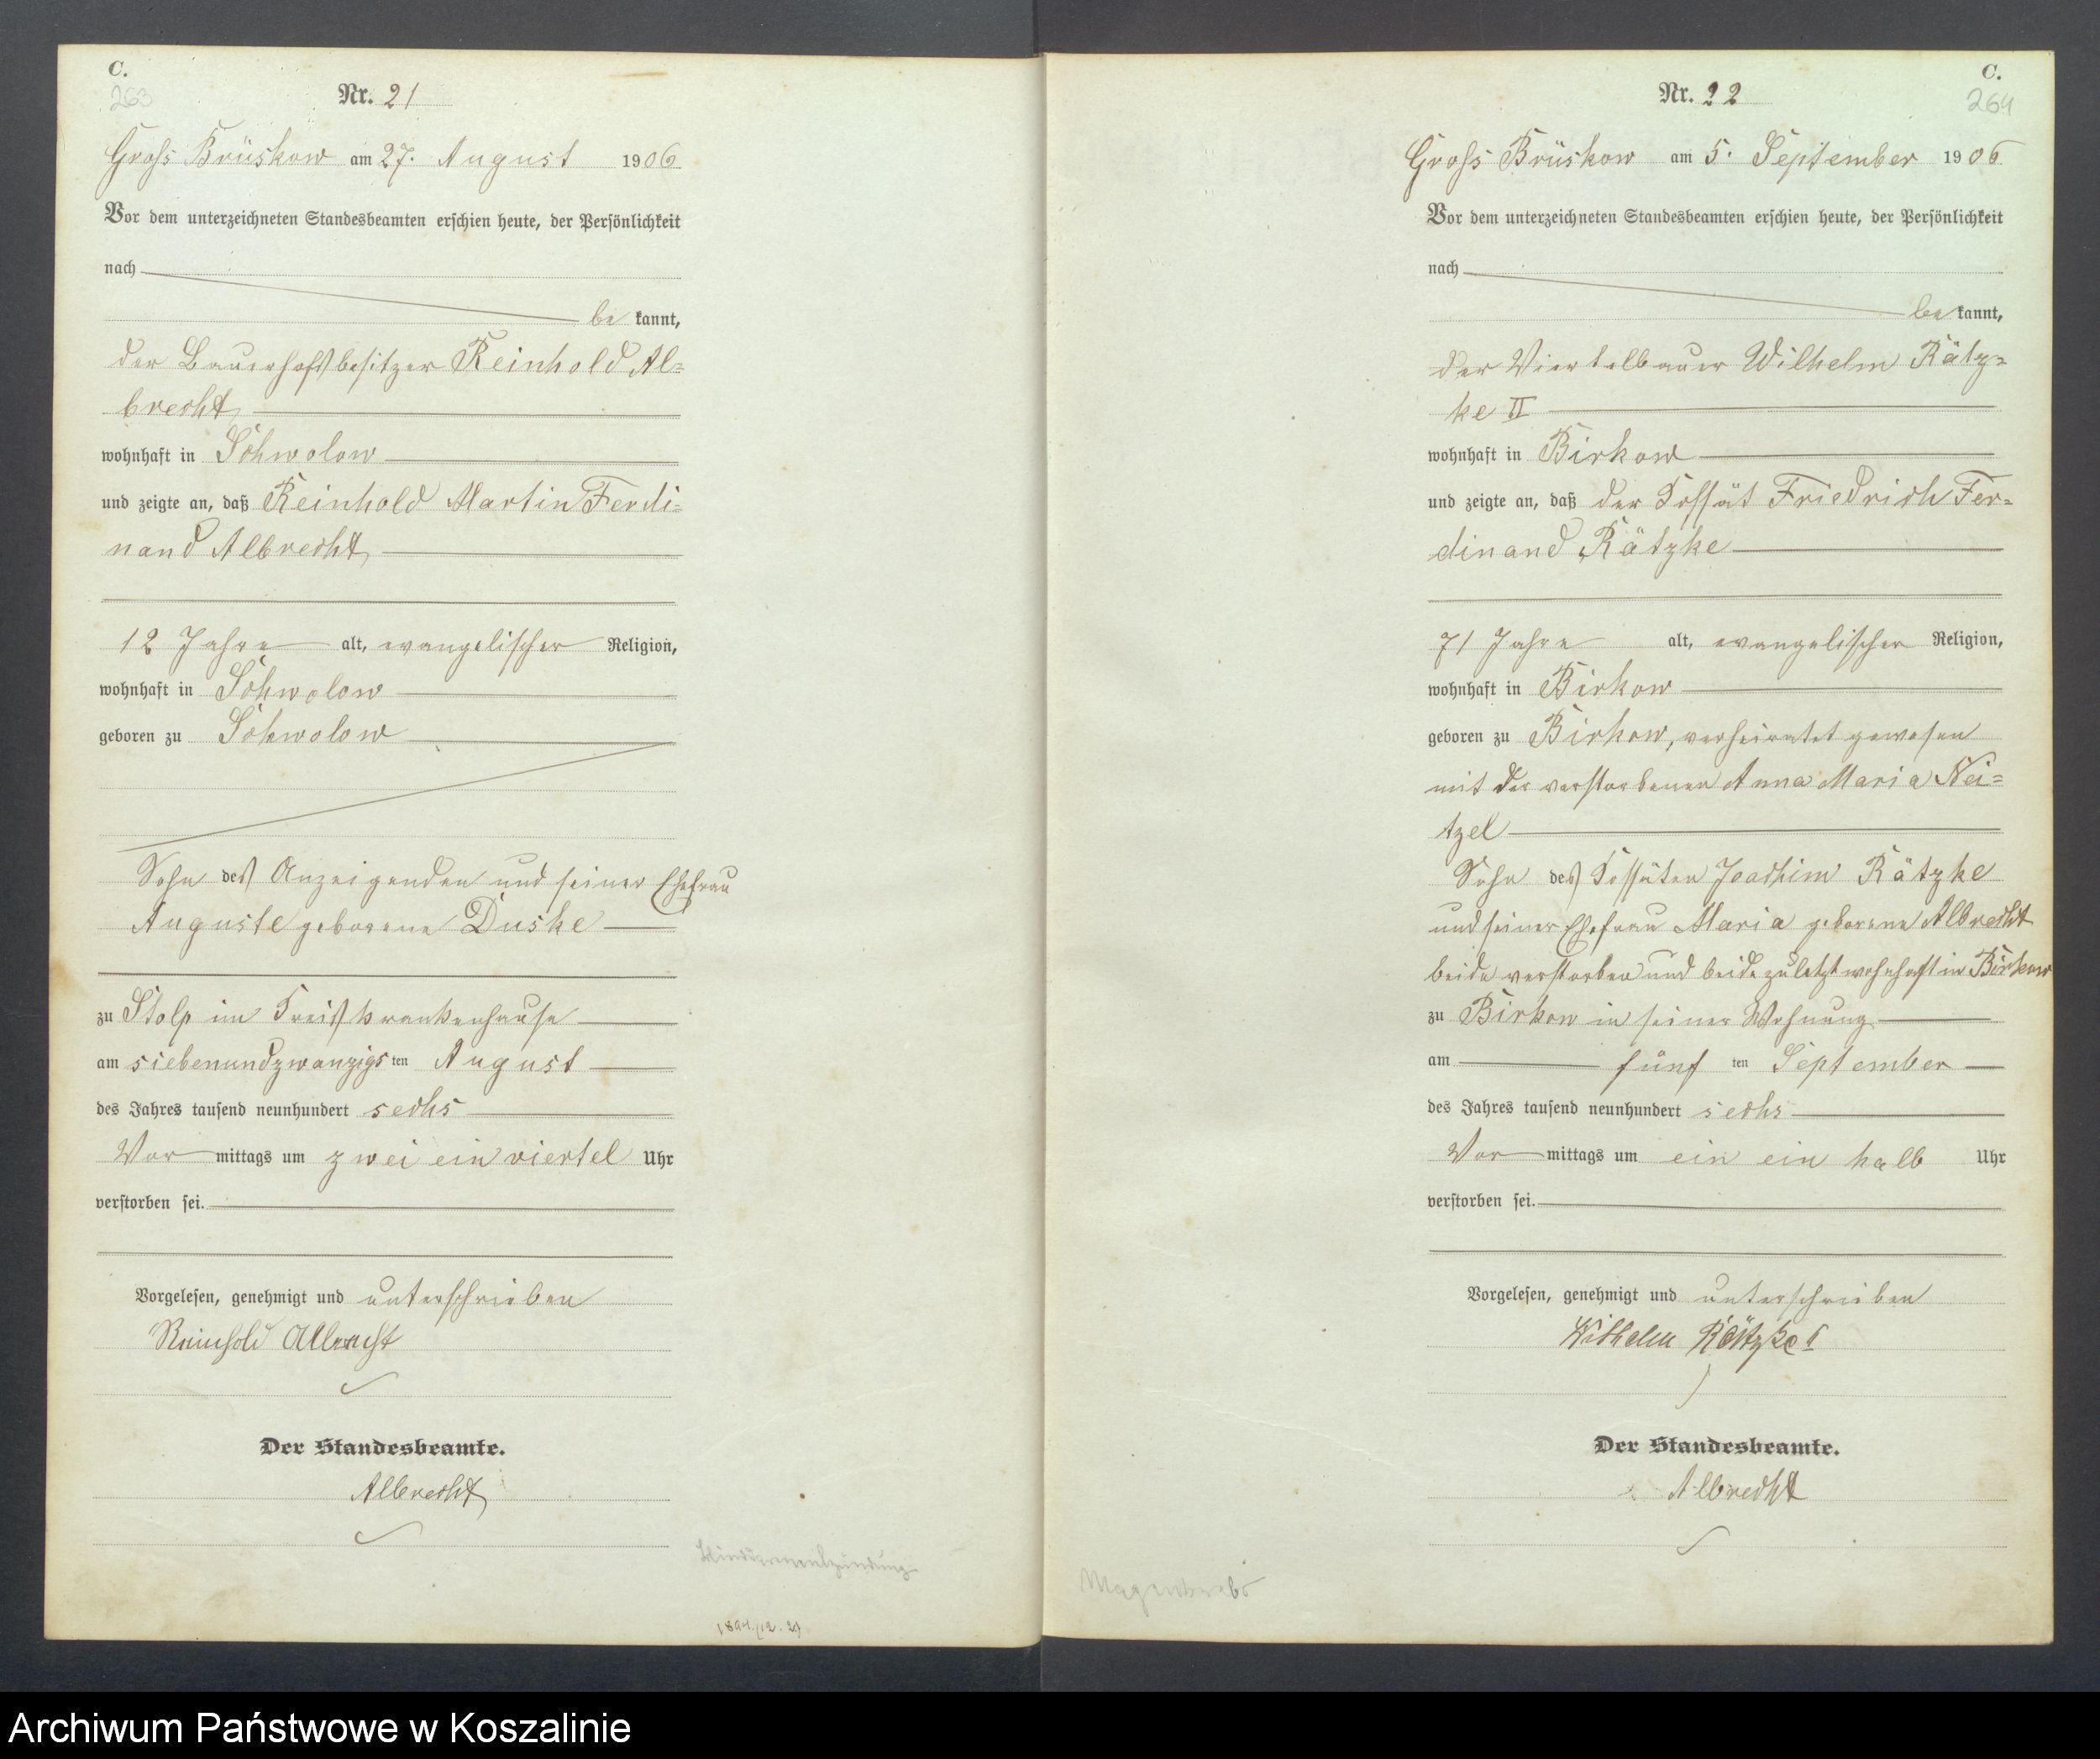 C.
263
Nr. 21
Gross Brüskow am 27. August 1906
Vor dem unterzeichneten Standesbeamten erschien heute, der Persönlichkeit
nach
be kannt,
der Bauerhofsbesitzer Reinhold Al=
brecht
wohnhaft in Schwolow
und zeigte an, daß Reinhold Martin Ferdi=
nand Albrecht,
12 Jahre alt, evangelischer Religion,
wohnhaft in Schwolow
geboren zu Schwolow
Sohn des Anzeigenden und seiner Ehefrau
Auguste geborene Duske
zu Stolp im Kreiskrankenhause
am siebenundzwanzigs ten August
des Jahres tausend neunhundert sechs
Vor mittags um zwei ein viertel Uhr
verstorben sei.
Vorgelesen, genehmigt und unterschrieben
Reinhold Albrecht
Der Standesbeamte.
Albrecht
1894./12. 21
C.
264
Nr. 22
Gross Brüskow am 5. September 1906
Vor dem unterzeichneten Standesbeamten erschien heute, der Persönlichkeit
nach
be kannt,
der Viertelbauer Wilhelm Rätz=
ke II
wohnhaft in Birkow
und zeigte an, daß der Kossät Friedrich Fer=
dinand Rätzke
71 Jahre alt, evangelischer Religion,
wohnhaft in Birkow
geboren zu Birkow, verheiratet gewesen
mit der verstorbenen Anna Maria Nei=
tzel
Sohn des Kossäten Joachim Rätzke
und seiner Ehefrau Maria geborene Albrecht
beide verstorben und beide zuletzt wohnhaft in Birkow
zu Birkow in seiner Wohnung
am fünf ten September
des Jahres tausend neunhundert sechs
Vor mittags um ein ein halb Uhr
verstorben sei.
Vorgelesen, genehmigt und unterschrieben
Wilhelm Rätzke
Der Standesbeamte.
Albrecht
Magenkrebs
Archiwum Państwowe w Koszalinie